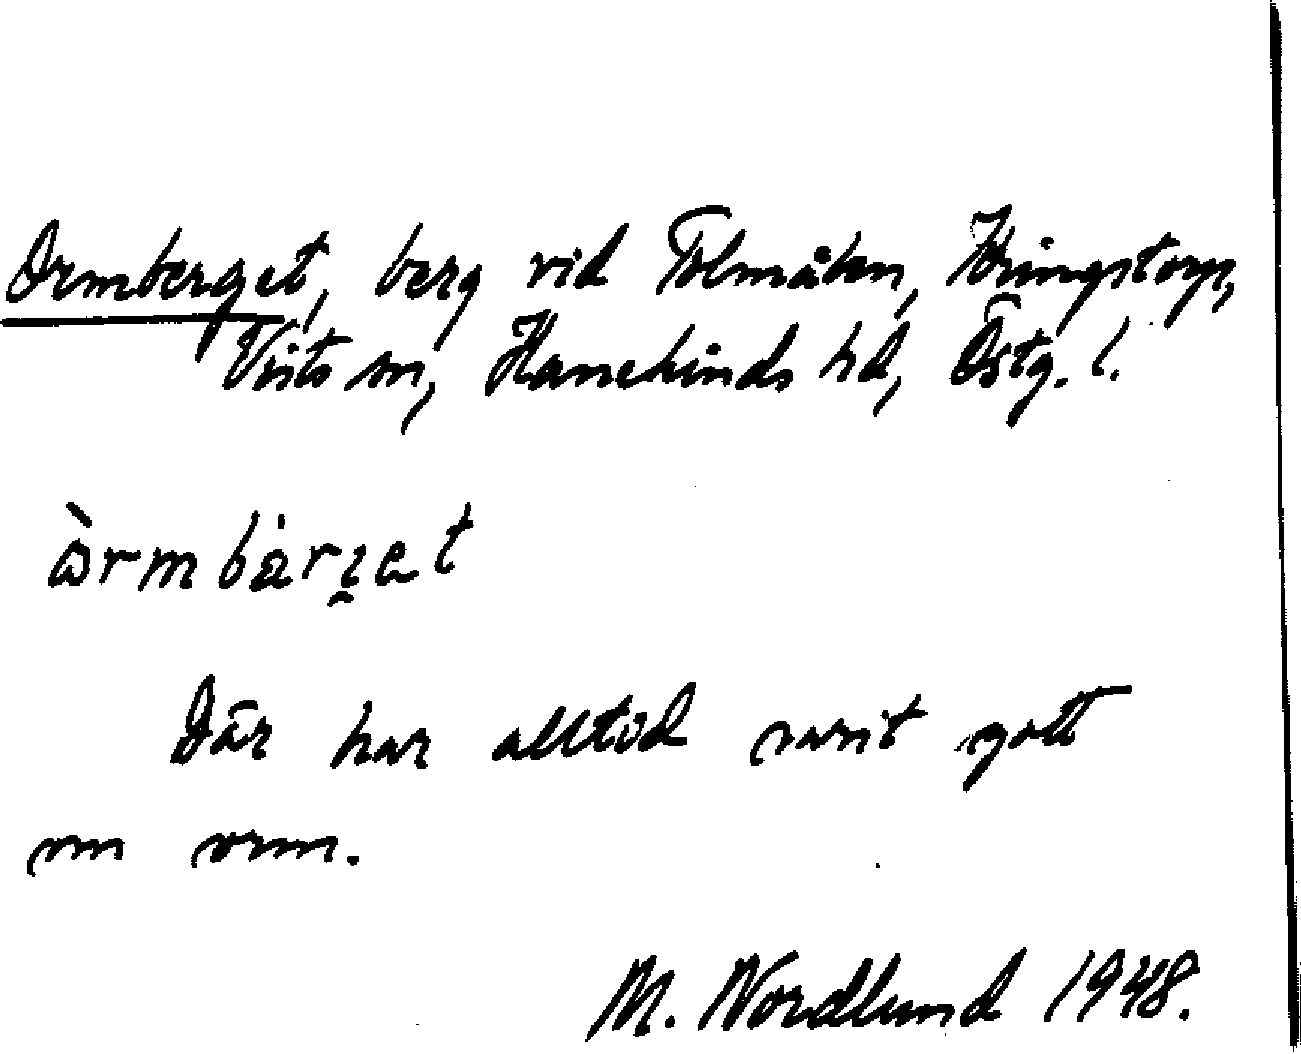 Ormberget, berg vid Tolmåtan, Kringstorp,
Vists sn, Hanekinds hd, Östg. l.
òrmbàrʒet
Där har alltid varit gott
om orm.
M. Nordlund 1948.